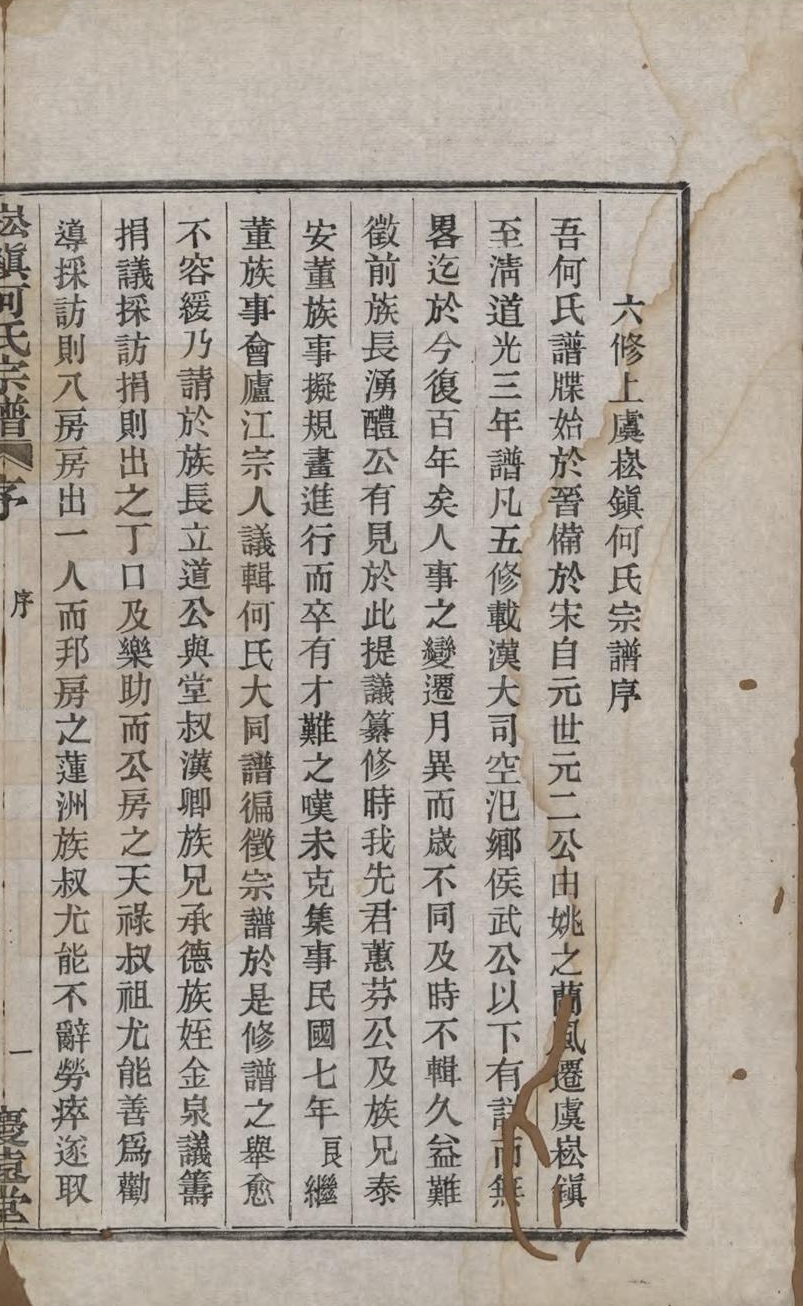 六修上虞崧鎭何氏宗譜序
吾何氏譜牒始於晉備於宋自元世元二公由姚之蘭風遷虞崧鎭
至淸道光三年譜凡五修載漢大司空氾鄕侯武公以下有詳而無
畧迄於今復百年矣人事之變遷月異而歲不同及時不輯久益難
徵前族長湧醴公有見於此提議纂修時我先君蕙芬公及族兄泰
安董族事擬規畫進行而卒有才難之嘆未克集事民國七年良繼
董族事會廬江宗人議輯何氏大同譜徧徵宗譜於是修譜之舉愈
不容緩乃請於族長立道公與堂叔漢卿族兄承德族姪金泉議籌
捐議採訪捐則出之丁口及樂助而公房之天祿叔祖尤能善爲勸
導採訪則八房房出一人而邦房之蓮洲族叔尤能不辭勞瘁遂取
崧鎭何氏宗譜 序 序 一 慶遠堂